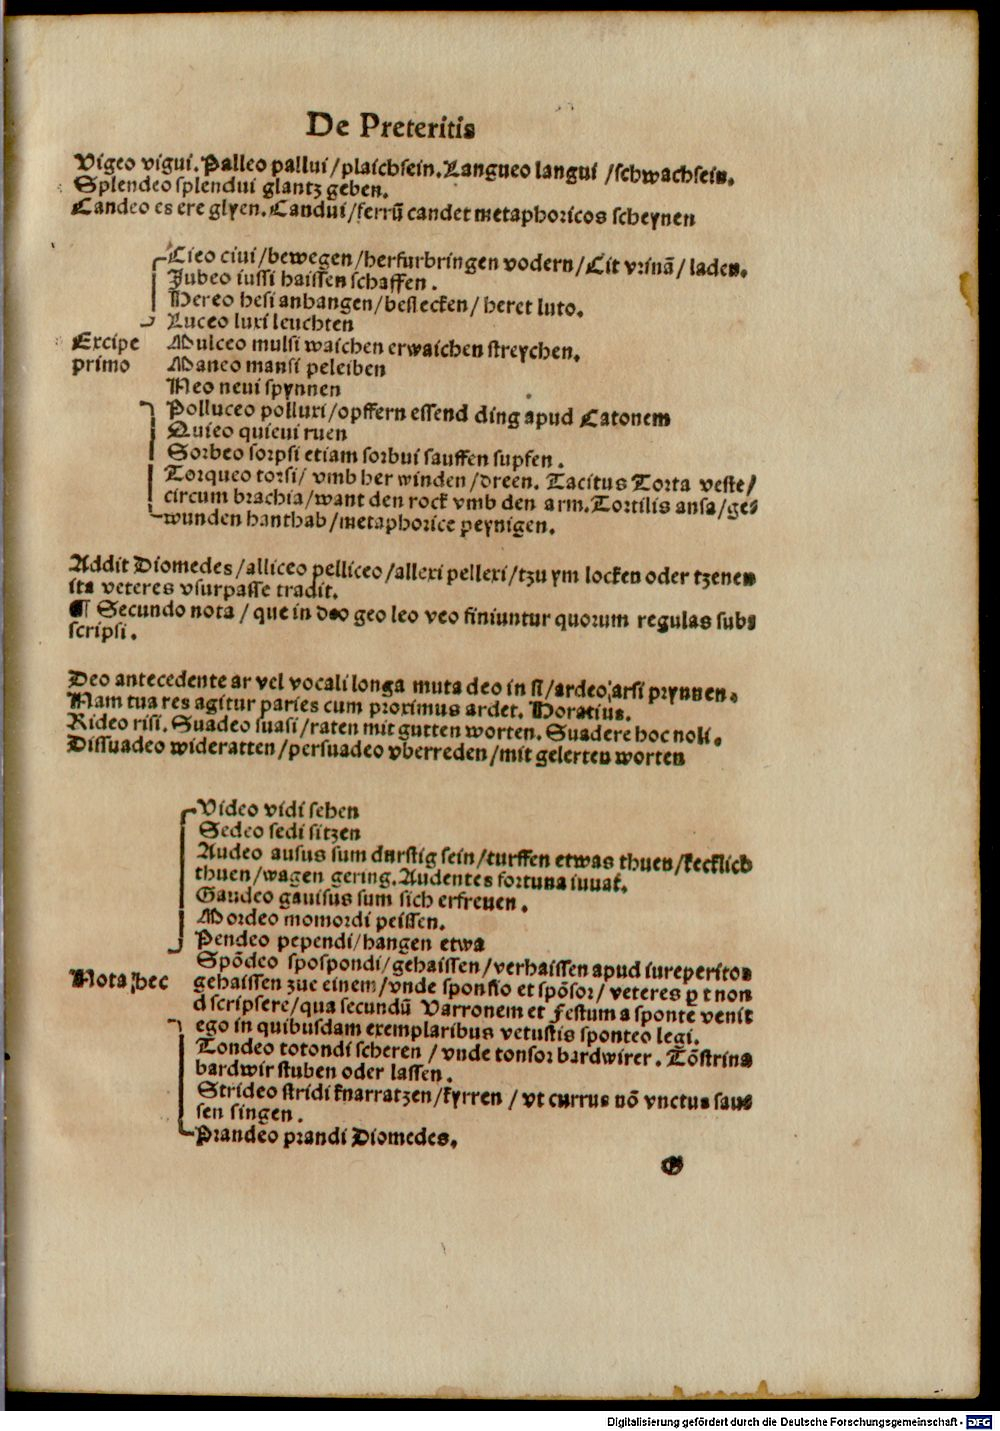 De Preteritis
Vigeo vigui. Palleo pallui/plaichsein. Langueo langui /schwachsein.
Splendeo splendui glantz geben.
Candeo es ere glyen. Candui/ferrū candet metaphoricos scheynen
Cieo ciui/bewegen/herfurbringen vodern/Cit vrinā/laden.
Jubeo iussi haissen schaffen.
Hereo hesi anhangen/beflecken/heret luto.
Luceo luxi leuchten
Excipe primo
Mulceo mulsi waichen erwaichen streychen.
Maneo mansi peleiben
Neo neui spynnen
Polluceo polluxi/opffern essend ding apud Catonem
Quieo quieui ruen
Sorbeo sorpsi etiam sorbui sauffen supfen.
Torqueo torsi/ vmb her winden/dreen. Tacitus Torta veste/
circum brachia/want den rock vmb den arm. Tortilis ansa/ge⸗
wunden hanthab/metaphorice peynigen.
Addit Diomedes/alliceo pelliceo/allexi pellexi/tzu ym locken oder tzenen
ita veteres vsurpasse tradit.
¶ Secundo nota / que in deo geo leo veo finiuntur quorum regulas sub⸗
scripsi.
Deo antecedente ar vel vocali longa muta deo in si/ardeo, arsi prynnen.
Nam tua res agitur paries cum proximus ardet. Horatius.
Rideo risi. Suadeo suasi/raten mit gutten worten. Suadere hoc noli.
Dissuadeo wideratten/persuadeo vberreden/mit gelerten worten
Video vidi sehen
Sedeo sedi sitzen
Audeo ausus sum durstig sein/turffen etwas thuen/kecklich
thuen/wagen gering. Audentes fortuna iuuat.
Gaudeo gauisus sum sich erfreuen.
Mordeo momordi peissen.
Pendeo pependi/hangen etwa
Spōdeo spospondi/gehaissen/verhaissen apud iureperitos
Nota hec
gehaissen zue einem/vnde sponsio et spōsor/ veteres ꝑ t non
d scripsere/qua secundū Varronem et Festum a sponte venit
ego in quibusdam exemplaribus vetustis sponteo legi.
Tondeo totondi scheren / vnde tonsor bardwirer. Tōstrina
bardwir stuben oder lassen.
Strideo stridi knarratzen/kyrren / vt currus nō vnctus sau⸗
sen singen.
Prandeo prandi Diomedes.
G
Digitalisierung gefördert durch die Deutsche Forschungsgemeinschaft - DFG